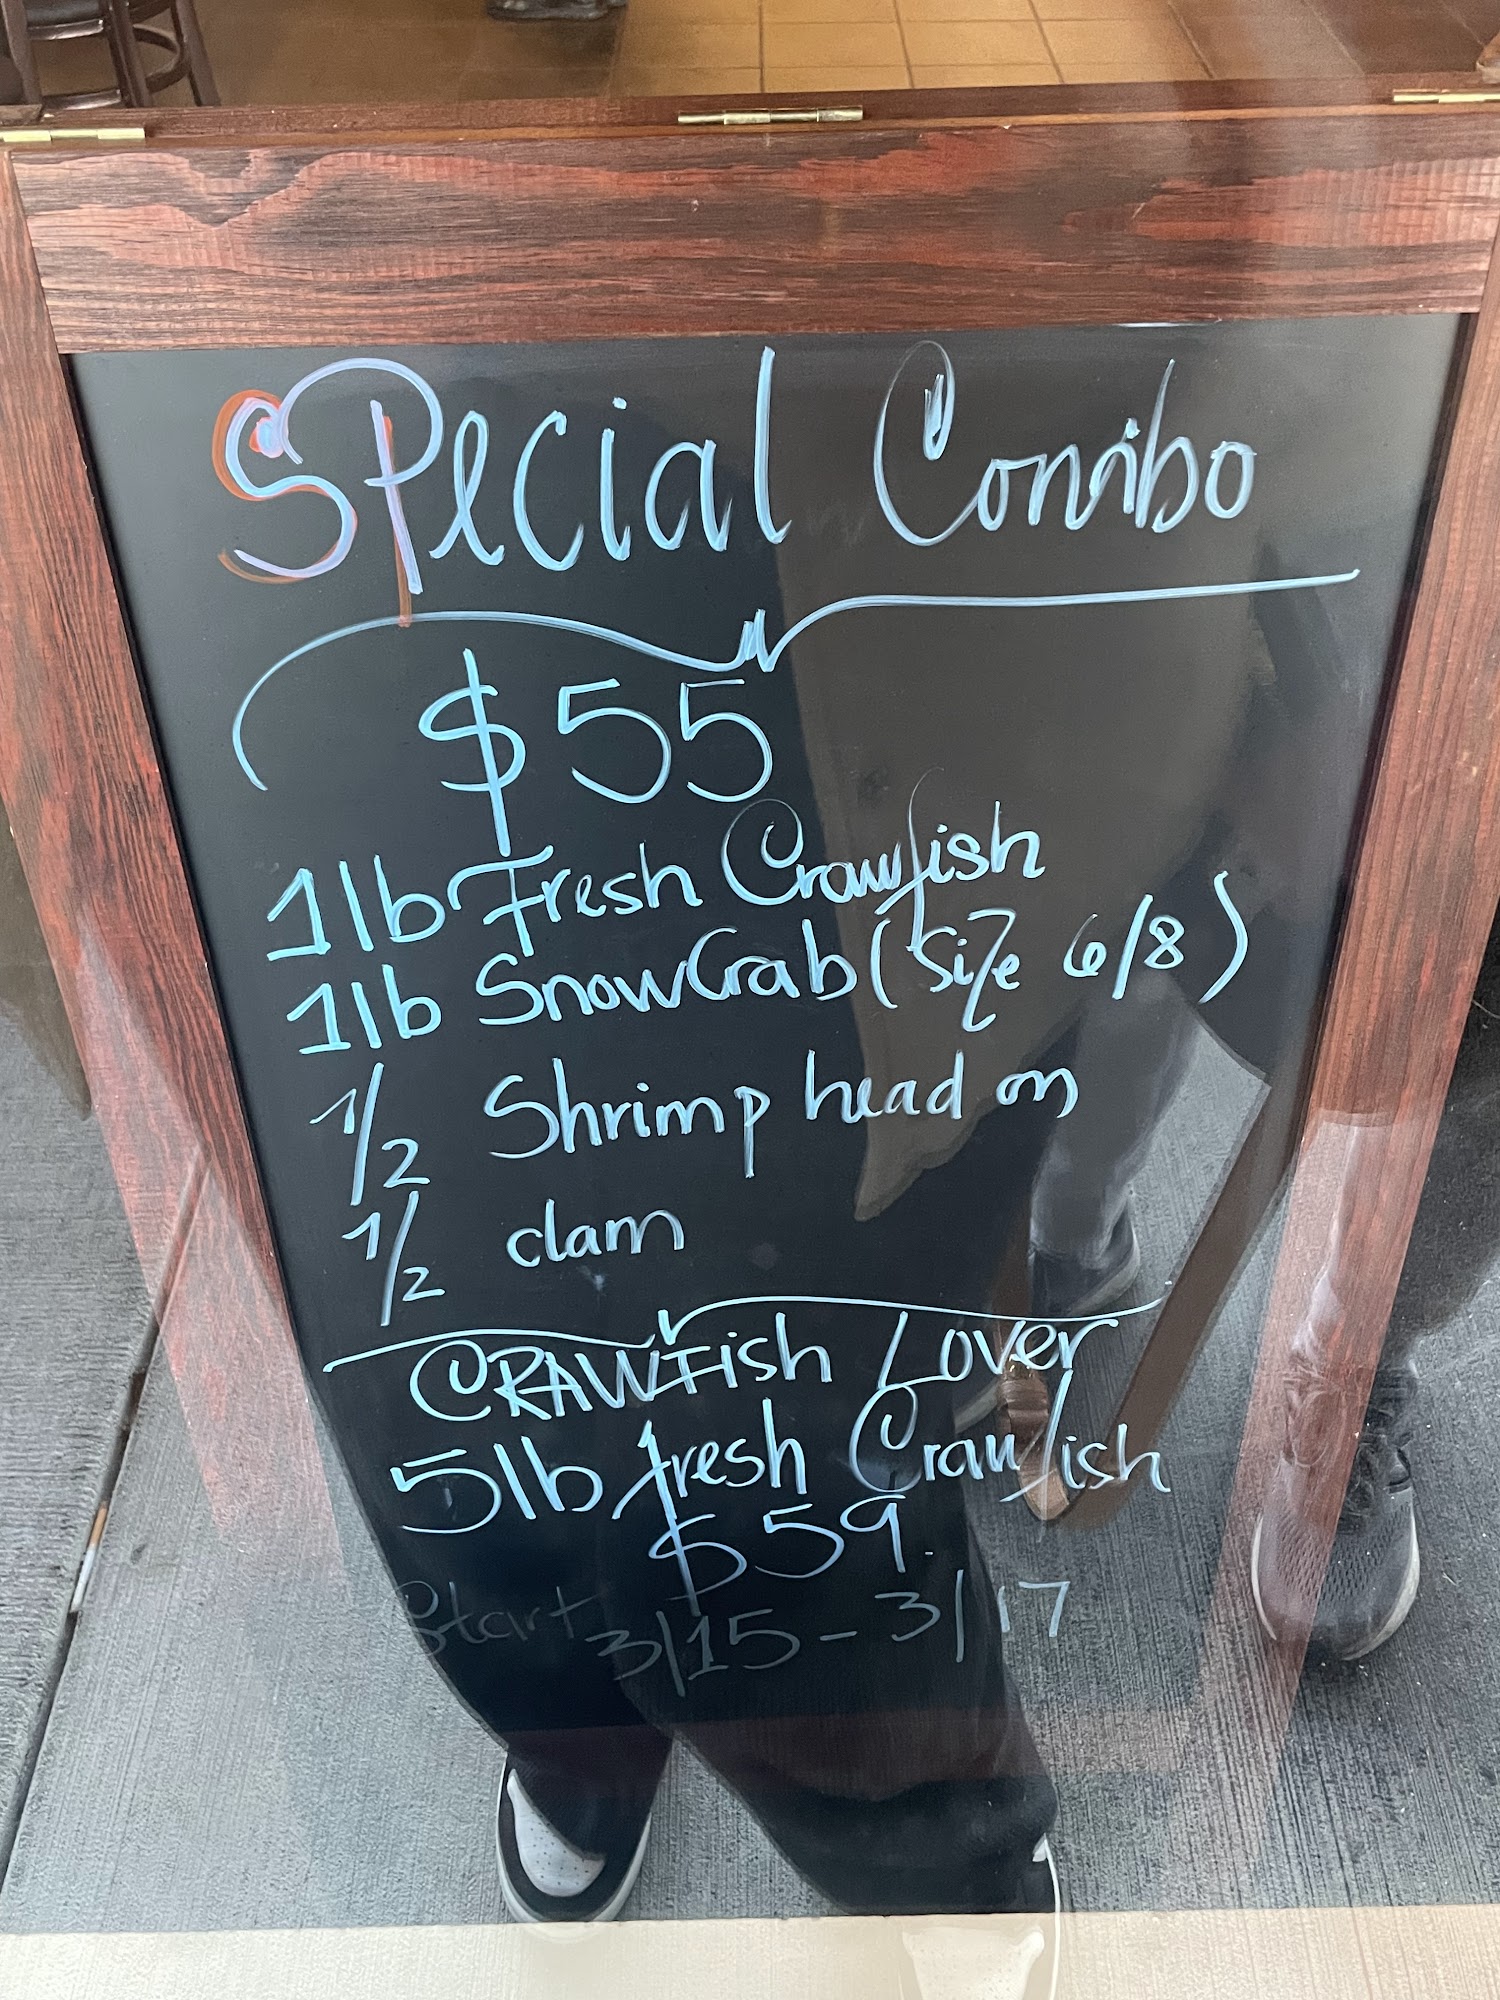 Special Combo
$55
1lb Fresh Crawfish
1lb SnowCrab (Size 6/8)
1/2 Shrimp head on
1/2 clam
CRAWFish Lover
5lb fresh Crawfish
$59.
Start 3/15 - 3/17